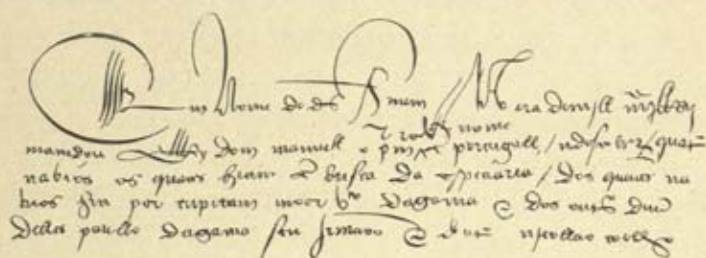 Em Nome de ds Amem // Na era de mill iiij lRbij
mamdou ell Rey dom manuell o pmo desto nome em portugall / a descobrir / quatro
nabios os quaes hiam em busca da especiaria / dos quaes na
bios hia por capitam moor Vco dagama e dos outros duu
delles paullo dagama seu Jrmaao e do outro njcollao coelho